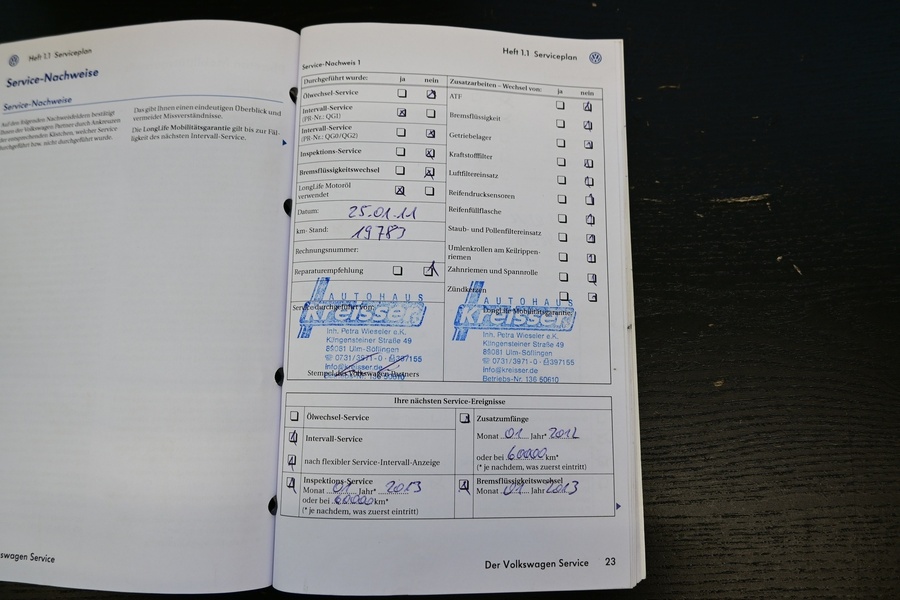 Heft 1.1 Serviceplan
Service-Nachweise
Service-Nachweise
Auf den folgenden Nachweisfeldern bestätigt
Ihnen der Volkswagen Partner durch Ankreuzen
der entsprechenden Kästchen, welcher Service
durchgeführt bzw. nicht durchgeführt wurde.
Das gibt Ihnen einen eindeutigen Überblick und
vermeidet Missverständnisse.
Die LongLife Mobilitätsgarantie gilt bis zur Fäl-
ligkeit des nächsten Intervall-Service.
swagen Service
Heft 1.1 Serviceplan
Service-Nachweis 1
Durchgeführt wurde: ja nein
Ölwechsel-Service
Intervall-Service
(PR-Nr.: QG1)
Intervall-Service
(PR-Nr.: QG0/QG2)
Inspektions-Service
Bremsflüssigkeitswechsel
LongLife Motoröl
verwendet
Datum: 25.01.11
km- Stand: 19783
Rechnungsnummer:
Reparaturempfehlung
Service durchgeführt von:
AUTOHAUS
Kreisser
Inh. Petra Wieseler e.K.
Klingensteiner Straße 49
89081 Ulm-Söflingen
☎ 0731/3971-0 · 397155
info@kreisser.de
Betriebs-Nr. 136 50610
Stempel des Volkswagen Partners
Zusatzarbeiten - Wechsel von: ja nein
ATF
Bremsflüssigkeit
Getriebelager
Kraftstofffilter
Luftfiltereinsatz
Reifendrucksensoren
Reifenfüllflasche
Staub- und Pollenfiltereinsatz
Umlenkrollen am Keilrippen-
riemen
Zahnriemen und Spannrolle
Zündkerzen
LongLife Mobilitätsgarantie
AUTOHAUS
Kreisser
Inh. Petra Wieseler e.K.
Klingensteiner Straße 49
89081 Ulm-Söflingen
☎ 0731/3971-0 · 397155
info@kreisser.de
Betriebs-Nr. 136 50610
Ihre nächsten Service-Ereignisse
Ölwechsel-Service
Intervall-Service
nach flexibler Service-Intervall-Anzeige
Inspektions-Service
Monat 01 Jahr* 2013
oder bei 60000 km*
(* je nachdem, was zuerst eintritt)
Zusatzumfänge
Monat 01 Jahr* 2012
oder bei 60000 km*
(* je nachdem, was zuerst eintritt)
Bremsflüssigkeitswechsel
Monat 01 Jahr 2013
Der Volkswagen Service 23